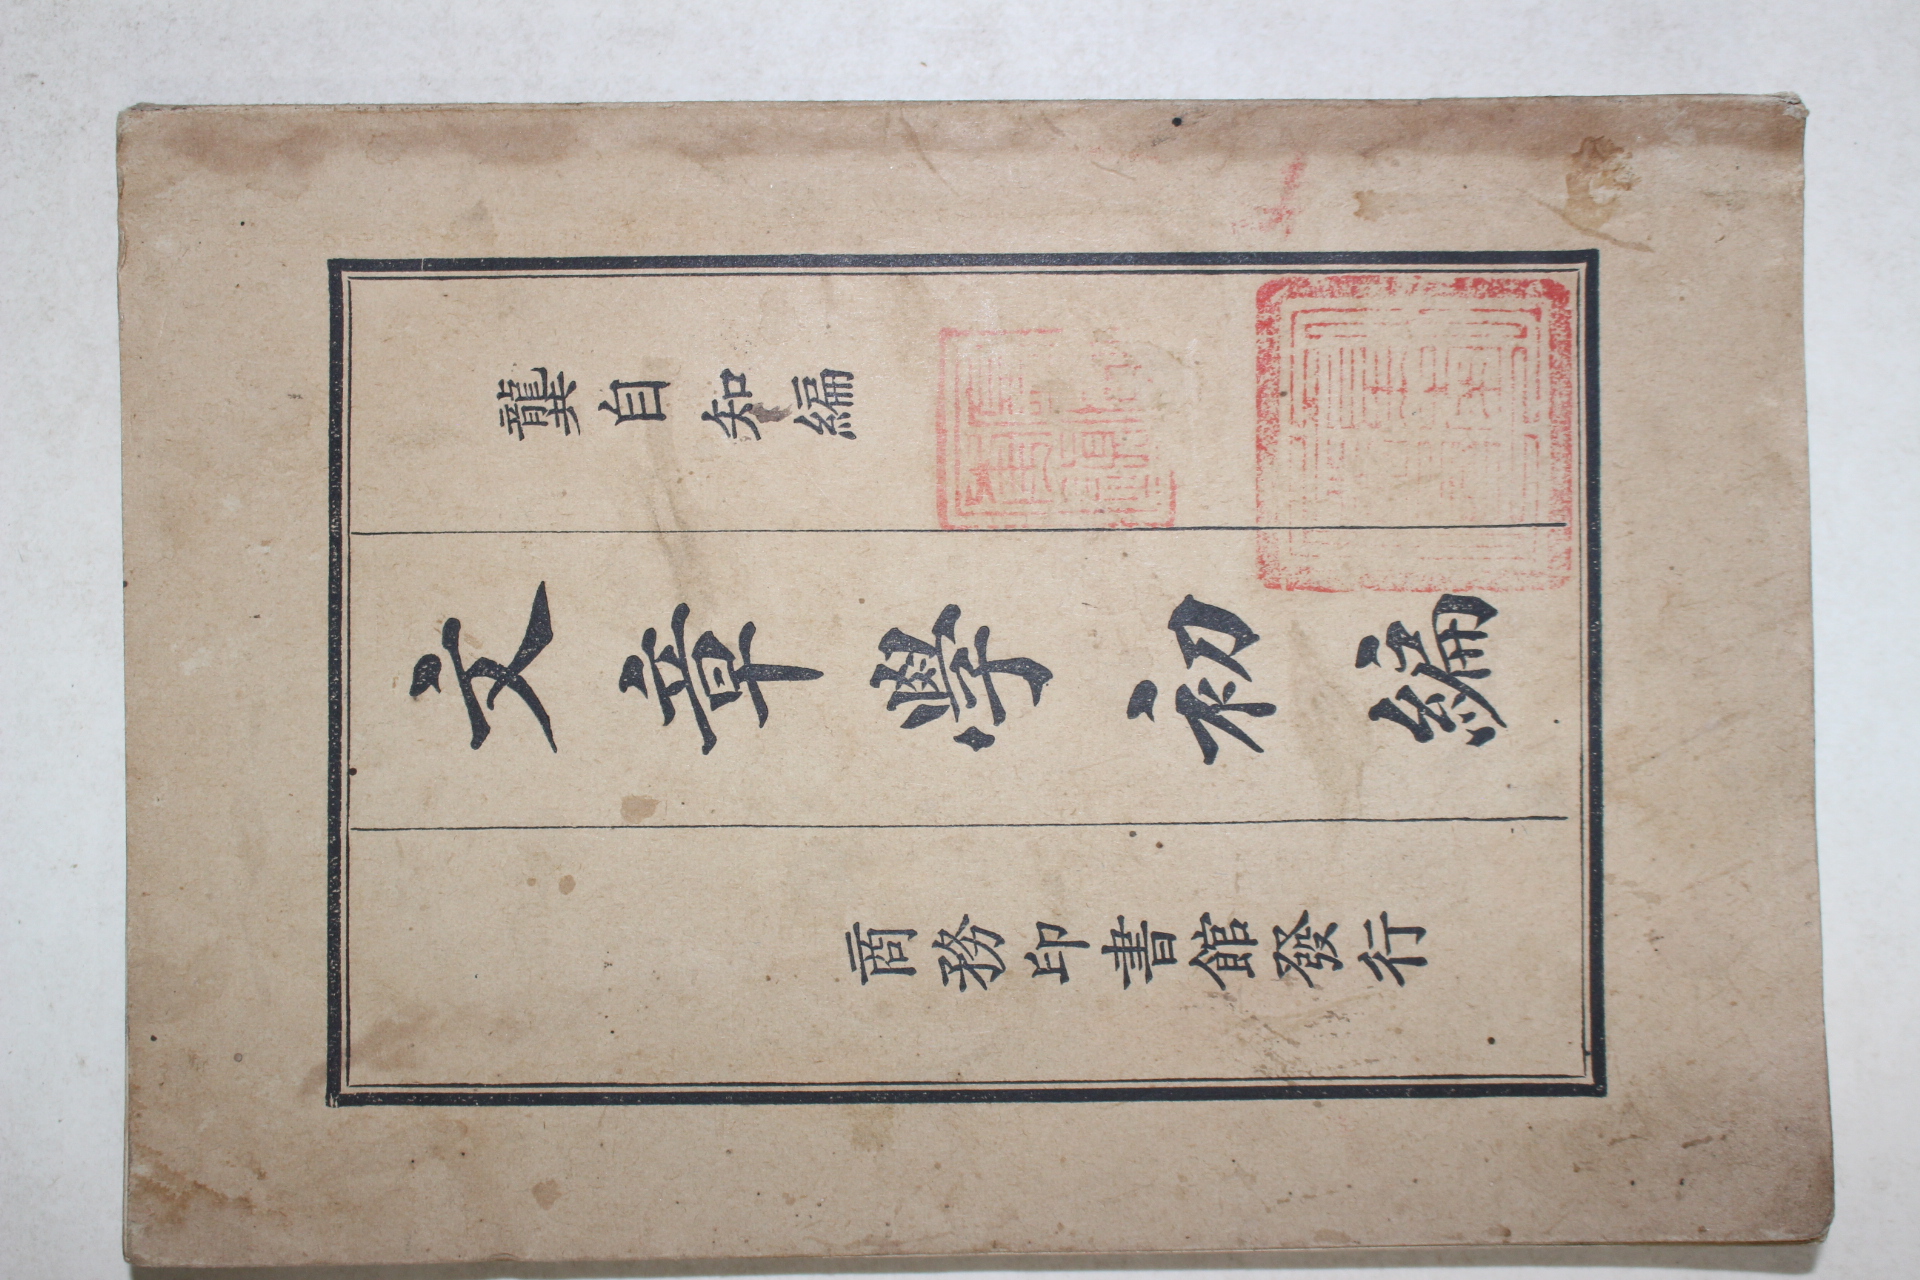 龔自知編
文章學初編
商務印書館發行